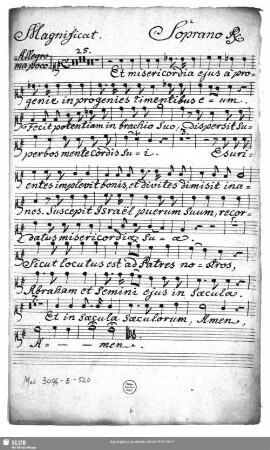 Magnificat. Soprano R
Allegro 25.
ma poco
Et misericordia ejus à pro-
genie in progenies timentibus e - um.
Fecit potentiam in brachio Suo, Dispersit Su-
perbos mente Cordis Su - i. Esuri-
entes implevit bonis, et divites dimisit ina-
nes. Suscepit Israël puerum Suum, recor-
datus misericordiæ Su - æ.
Sicut locutus est ad Patres no - stros,
Abraham et Semini ejus in Sæcula.
Et in Sæcula Sæculorum, Amen,
A - - - men.
Mus. 3056-E-520
6
SLUB